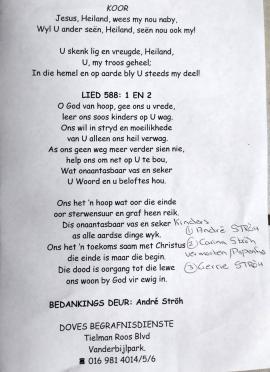 KOOR
Jesus, Heiland, wees my nou naby,
Wyl U ander seën, Heiland, seën nou ook my!
U skenk lig en vreugde, Heiland,
U, my troos geheel;
In die hemel en op aarde bly U steeds my deel!
LIED 588: 1 EN 2
O God van hoop, gee ons u vrede,
leer ons soos kinders op U wag.
Ons wil in stryd en moeilikhede
van U alleen ons heil verwag.
As ons geen weg meer verder sien nie,
help ons om net op U te bou,
Wat onaantasbaar vas en seker
U Woord en u beloftes hou.
Ons het 'n hoop wat oor die einde
oor sterwensuur en graf heen reik.
Dis onaantasbaar vas en seker
as alle aardse dinge wyk.
Ons het 'n toekoms saam met Christus
die einde is maar die begin.
Die dood is oorgang tot die lewe
ons woon by God vir ewig in.
Kinders
① André STRÖH
② Carina Ströh
③ Gerrie STRÖH
BEDANKINGS DEUR: André Ströh
DOVES BEGRAFNISDIENSTE
Tielman Roos Blvd
Vanderbijlpark.
☎ 016 981 4014/5/6